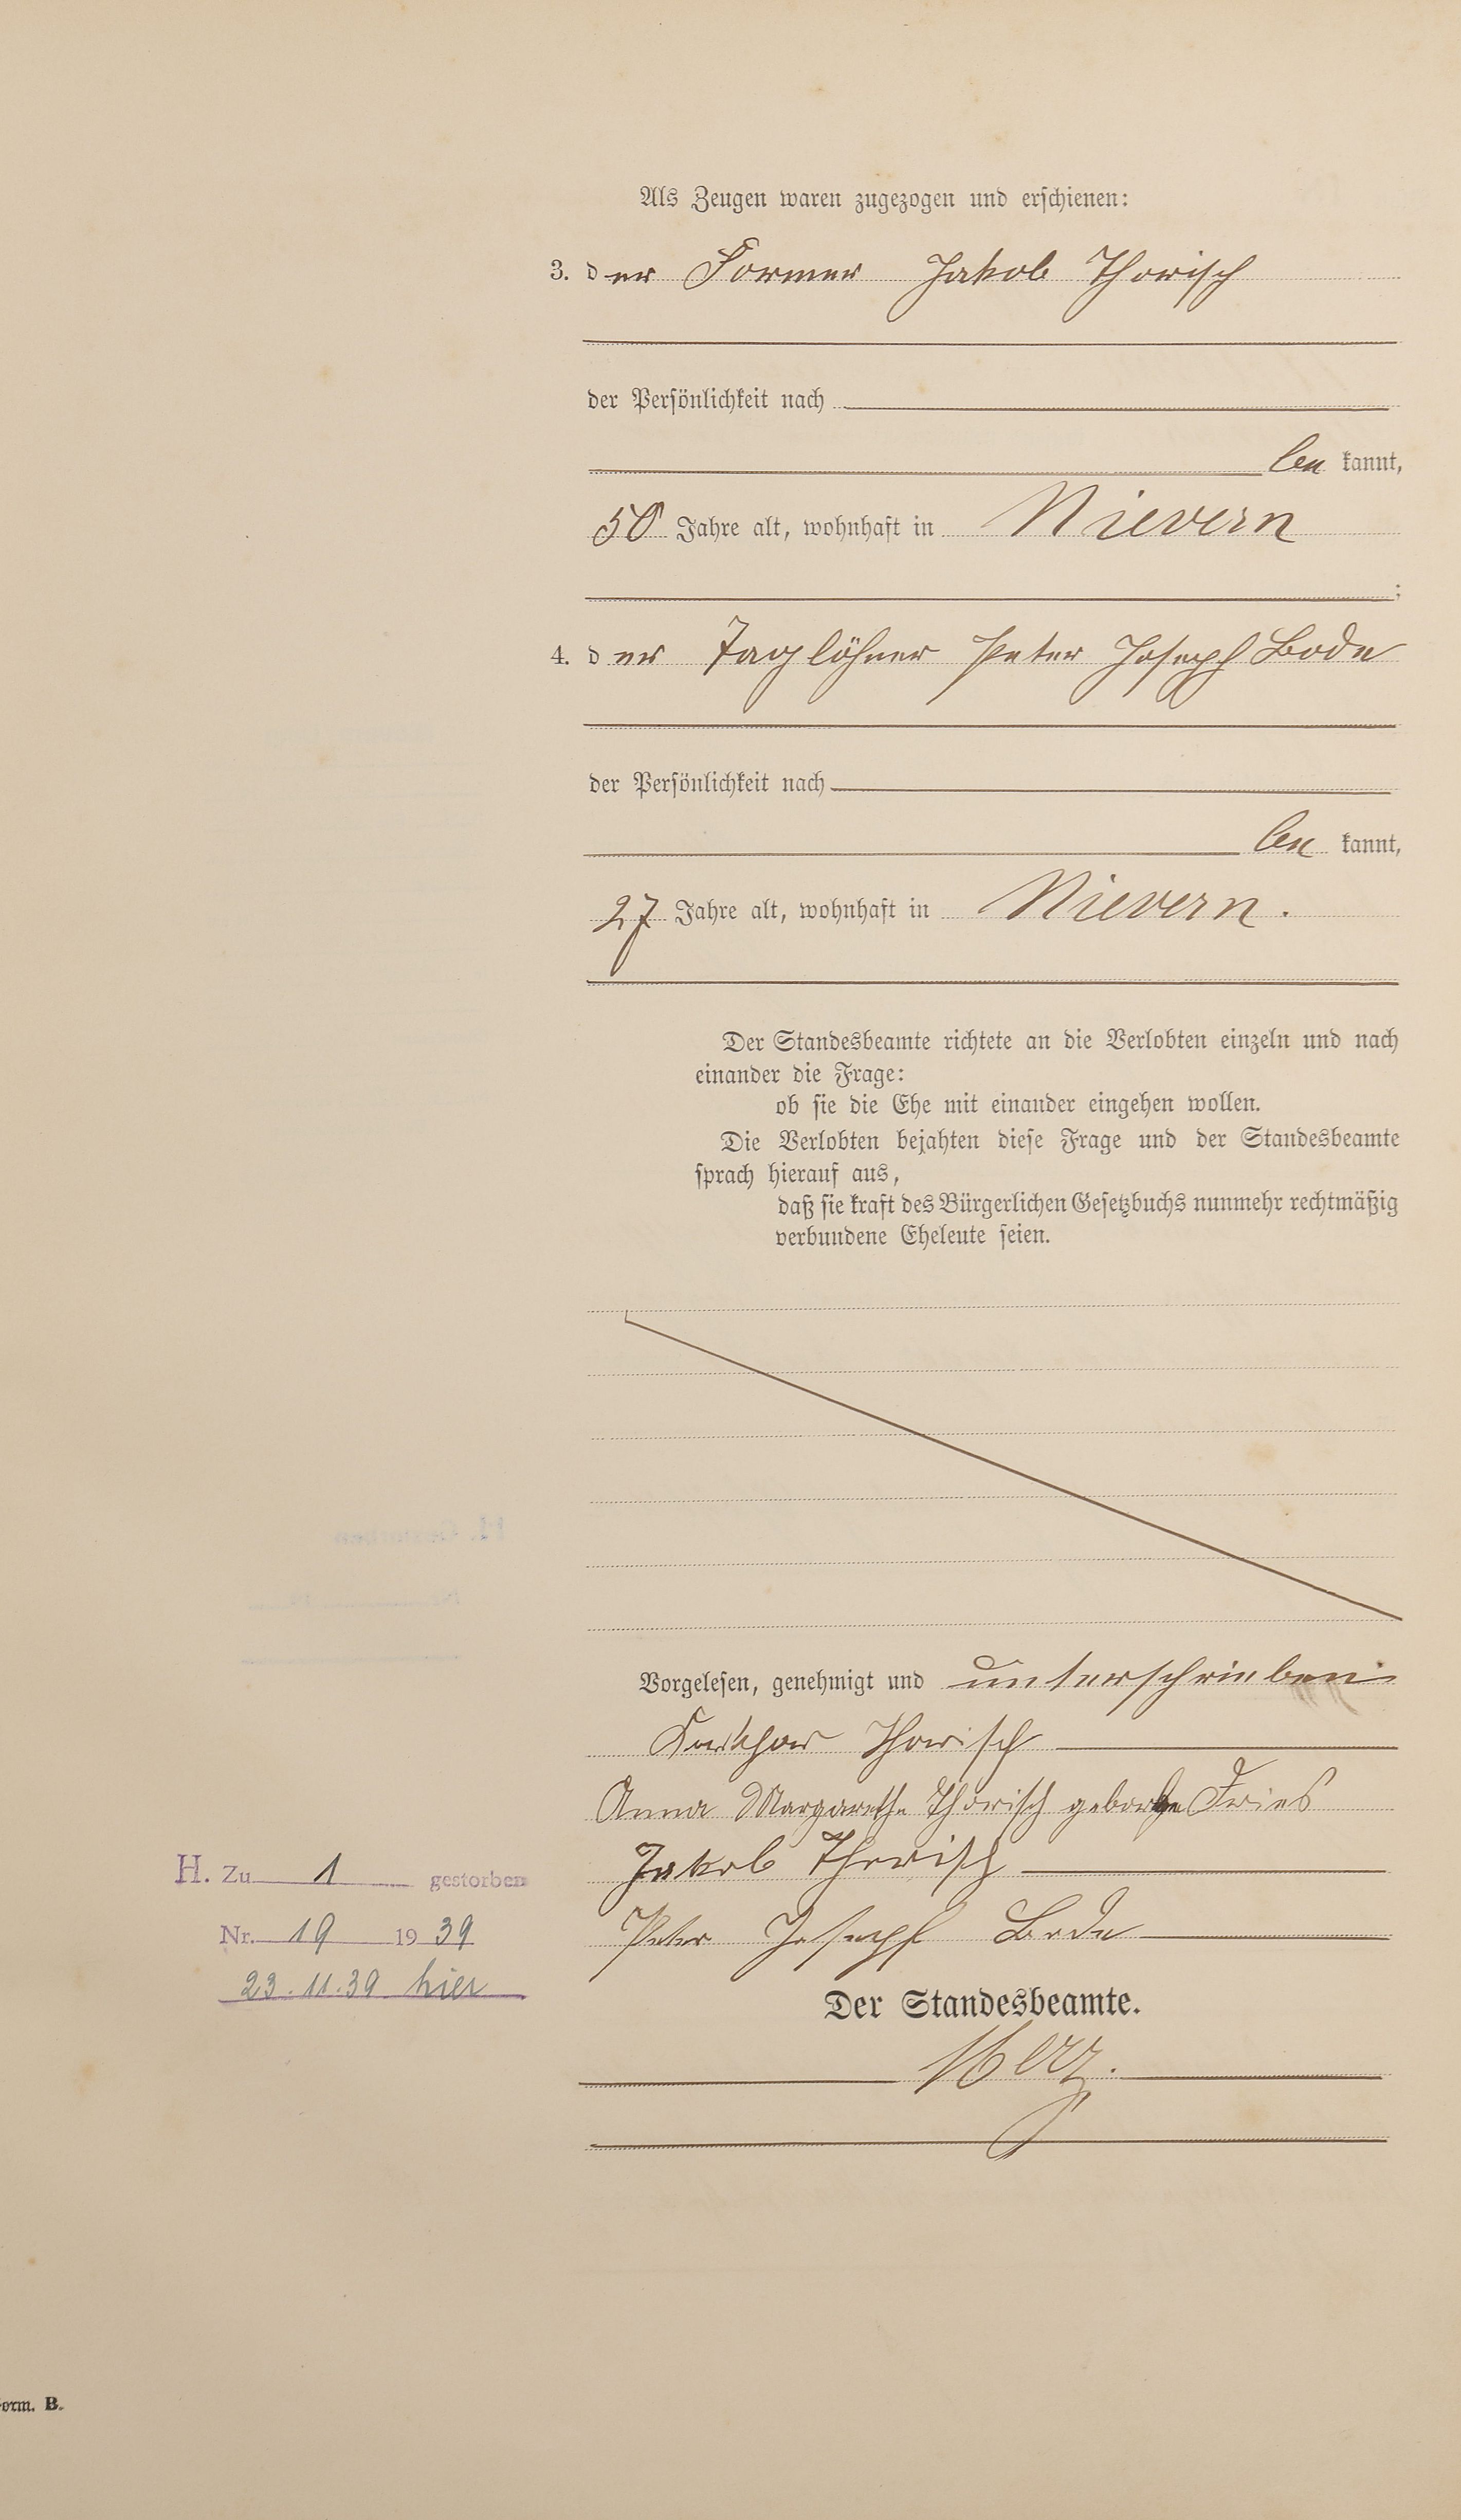 Als Zeugen waren zugezogen und erschienen:
3. der Former Jakob Thorisch
der Persönlichkeit nach
be kannt,
50 Jahre alt, wohnhaft in Nievern
;
4. der Taglöhner Peter Joseph Bode
der Persönlichkeit nach
be kannt,
27 Jahre alt, wohnhaft in Nievern.
Der Standesbeamte richtete an die Verlobten einzeln und nach
einander die Frage:
ob sie die Ehe mit einander eingehen wollen.
Die Verlobten bejahten diese Frage und der Standesbeamte
sprach hierauf aus,
daß sie kraft des Bürgerlichen Gesetzbuchs nunmehr rechtmäßig
verbundene Eheleute seien.
Vorgelesen, genehmigt und unterschrieben
Thorisch
Anna Margarethe Thorisch geborne Fries
Jakob Thorisch
H. Zu 1 gestorben
Peter Joseph Bode
Nr. 19 1939
23.11.39 hier
Der Standesbeamte.
Form. B.